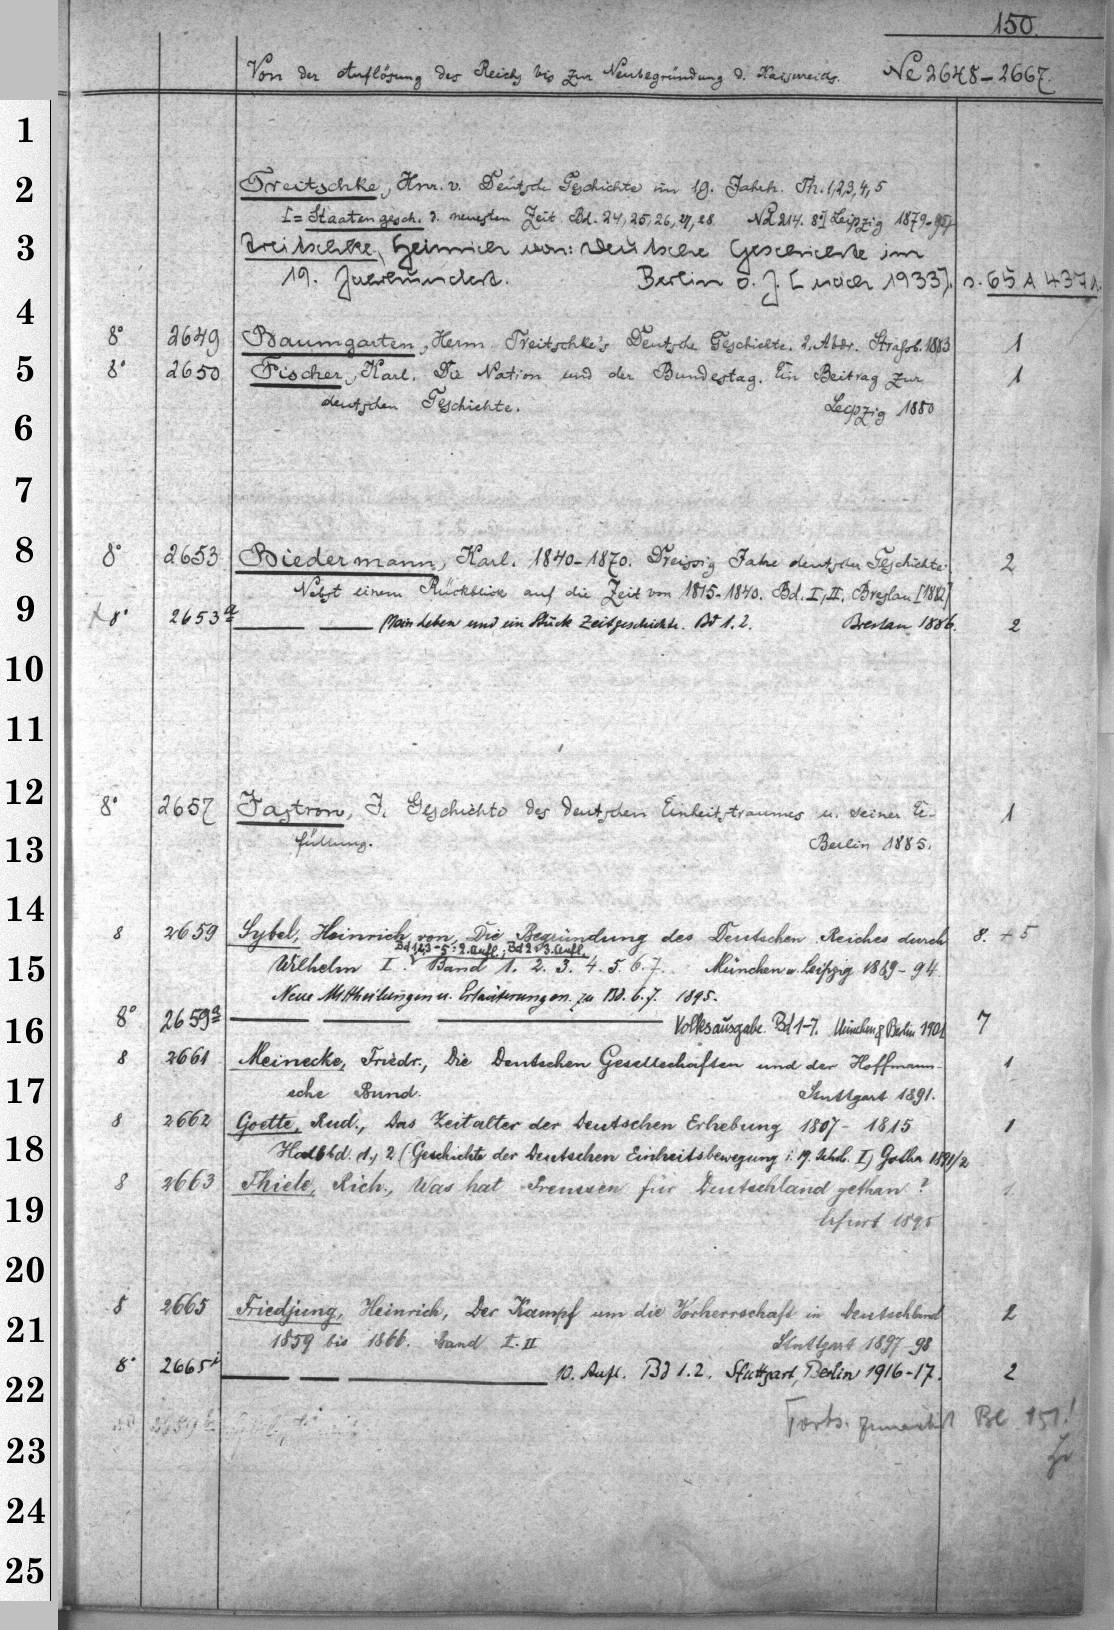 150.
Von der Auflösung des Reichs bis zur Neubegründung d. Kaiserreichs. No 2648-2667.
1
2
3
4
5
6
7
8
9
10
11
12
13
14
15
16
17
18
19
20
21
22
23
24
25
Treitschke, Hnr. v. Deutsche Geschichte im 19. Jahrh. Th. 1,2,3,4,5
[= Staatengesch. d. neuesten Zeit Bd. 24, 25, 26, 27, 28 No 214. 8°] Leipzig 1879-94
Treitschke, Heinrich von: Deutsche Geschichte im
19. Jahrhundert. Berlin o. J. [nach 1933]. s. 65 A 4371.
8° 2649 Baumgarten, Herm. Treitschke's Deutsche Geschichte. 2. Abdr. Strassb. 1883 1
8° 2650 Fischer, Karl. Die Nation und der Bundestag. Ein Beitrag zur 1
deutschen Geschichte. Leipzig 1880
8° 2653 Biedermann, Karl. 1840-1870. Dreissig Jahre deutscher Geschichte. 2
Nebst einem Rückblick auf die Zeit von 1815-1840. Bd. I, II. Breslau [1882]
8° 2653a Mein Leben und ein Stück Zeitgeschichte. Bd 1. 2. Breslau 1886. 2
8° 2657 Jastrow, J. Geschichte des deutschen Einheitstraumes u. seiner Er- 1
füllung. Berlin 1885.
8 2659 Sybel, Heinrich von, Die Begründung des Deutschen Reiches durch 8. + 5
Bd 1,2,3-5: 2. Aufl., Bd 2: 3. Aufl.
Wilhelm I. Band 1. 2. 3. 4. 5. 6. 7. München u. Leipzig 1889-94
Neue Mittheilungen u. Erläuterungen zu Bd. 6. 7. 1895.
8° 2659a Volksausgabe. Bd 1-7. München & Berlin 1901 7
8 2661 Meinecke, Friedr., Die Deutschen Gesellschaften und der Hoffmann- 1
sche Bund. Stuttgart 1891.
8 2662 Goette, Rud., Das Zeitalter der Deutschen Erhebung 1807-1815 1
Halbbd. 1, 2 (Geschichte der Deutschen Einheitsbewegung i. 19. Jahrh. I) Gotha 1891/2
8 2663 Thiele, Rich., Was hat Preussen für Deutschland gethan? 1
Erfurt 1895
8 2665 Friedjung, Heinrich, Der Kampf um die Vorherrschaft in Deutschland 2
1859 bis 1866. Band I. II Stuttgart 1897 98
8° 2665i 10. Aufl. Bd 1. 2. Stuttgart, Berlin 1916-17. 2
Forts. zunächst Bl. 151!